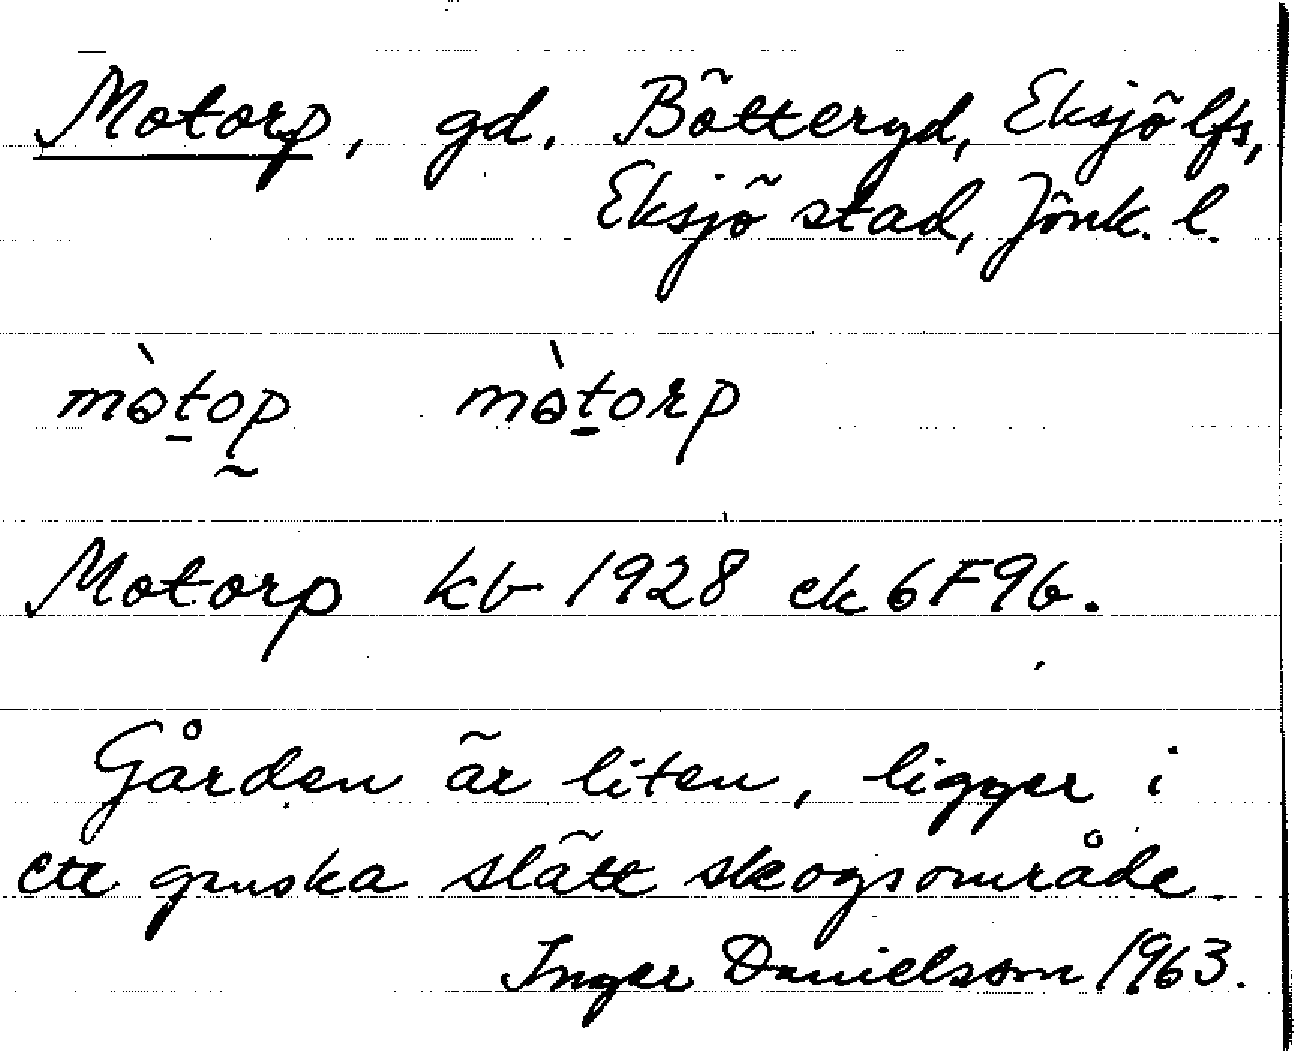 Motorp, gd. Bötteryd, Eksjö lfs,
Eksjö stad, Jönk. l.
mòtop mòtorp
Motorp kb 1928 ek 6F9b.
Gården är liten, ligger i
ett ganska slätt skogsområde.
Inger Danielsson 1963.